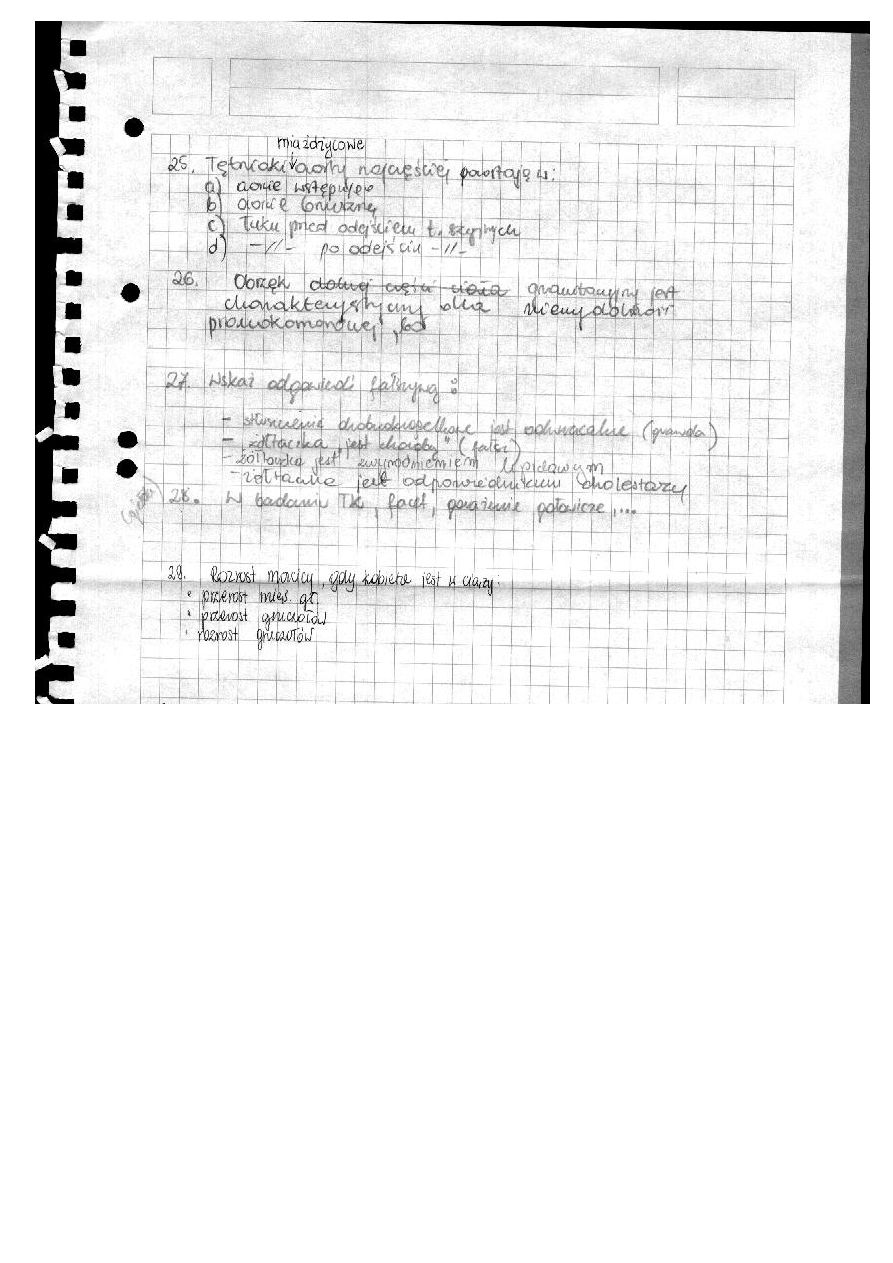 miażdżycowe
25. Tętniaki aorty najczęściej powstają w:
a) aorcie wstępującej
b) aorcie brzusznej
c) łuku przed odejściem t. szyjnych
d) -//- po odejściu -//-
26. Obrzęk dolnej części ciała grawitacyjny jest
charakterystyczny dla niewydolności
prawokomorowej,
27. Wskaż odpowiedź fałszywą :
- stłuszczenie drobnokropelkowe jest odwracalne (prawda)
- "żółtaczka jest chorobą" (fałsz)
- żółtaczka jest zwyrodnieniem lipidowym
- żółtaczka jest odpowiednikiem cholestazy
28. W badaniu TK, facet, porażenie połowicze, ...
29. Rozrost macicy, gdy kobieta jest w ciąży:
• przerost mięś. gł.
• przerost gruczołów
• rozrost gruczołów